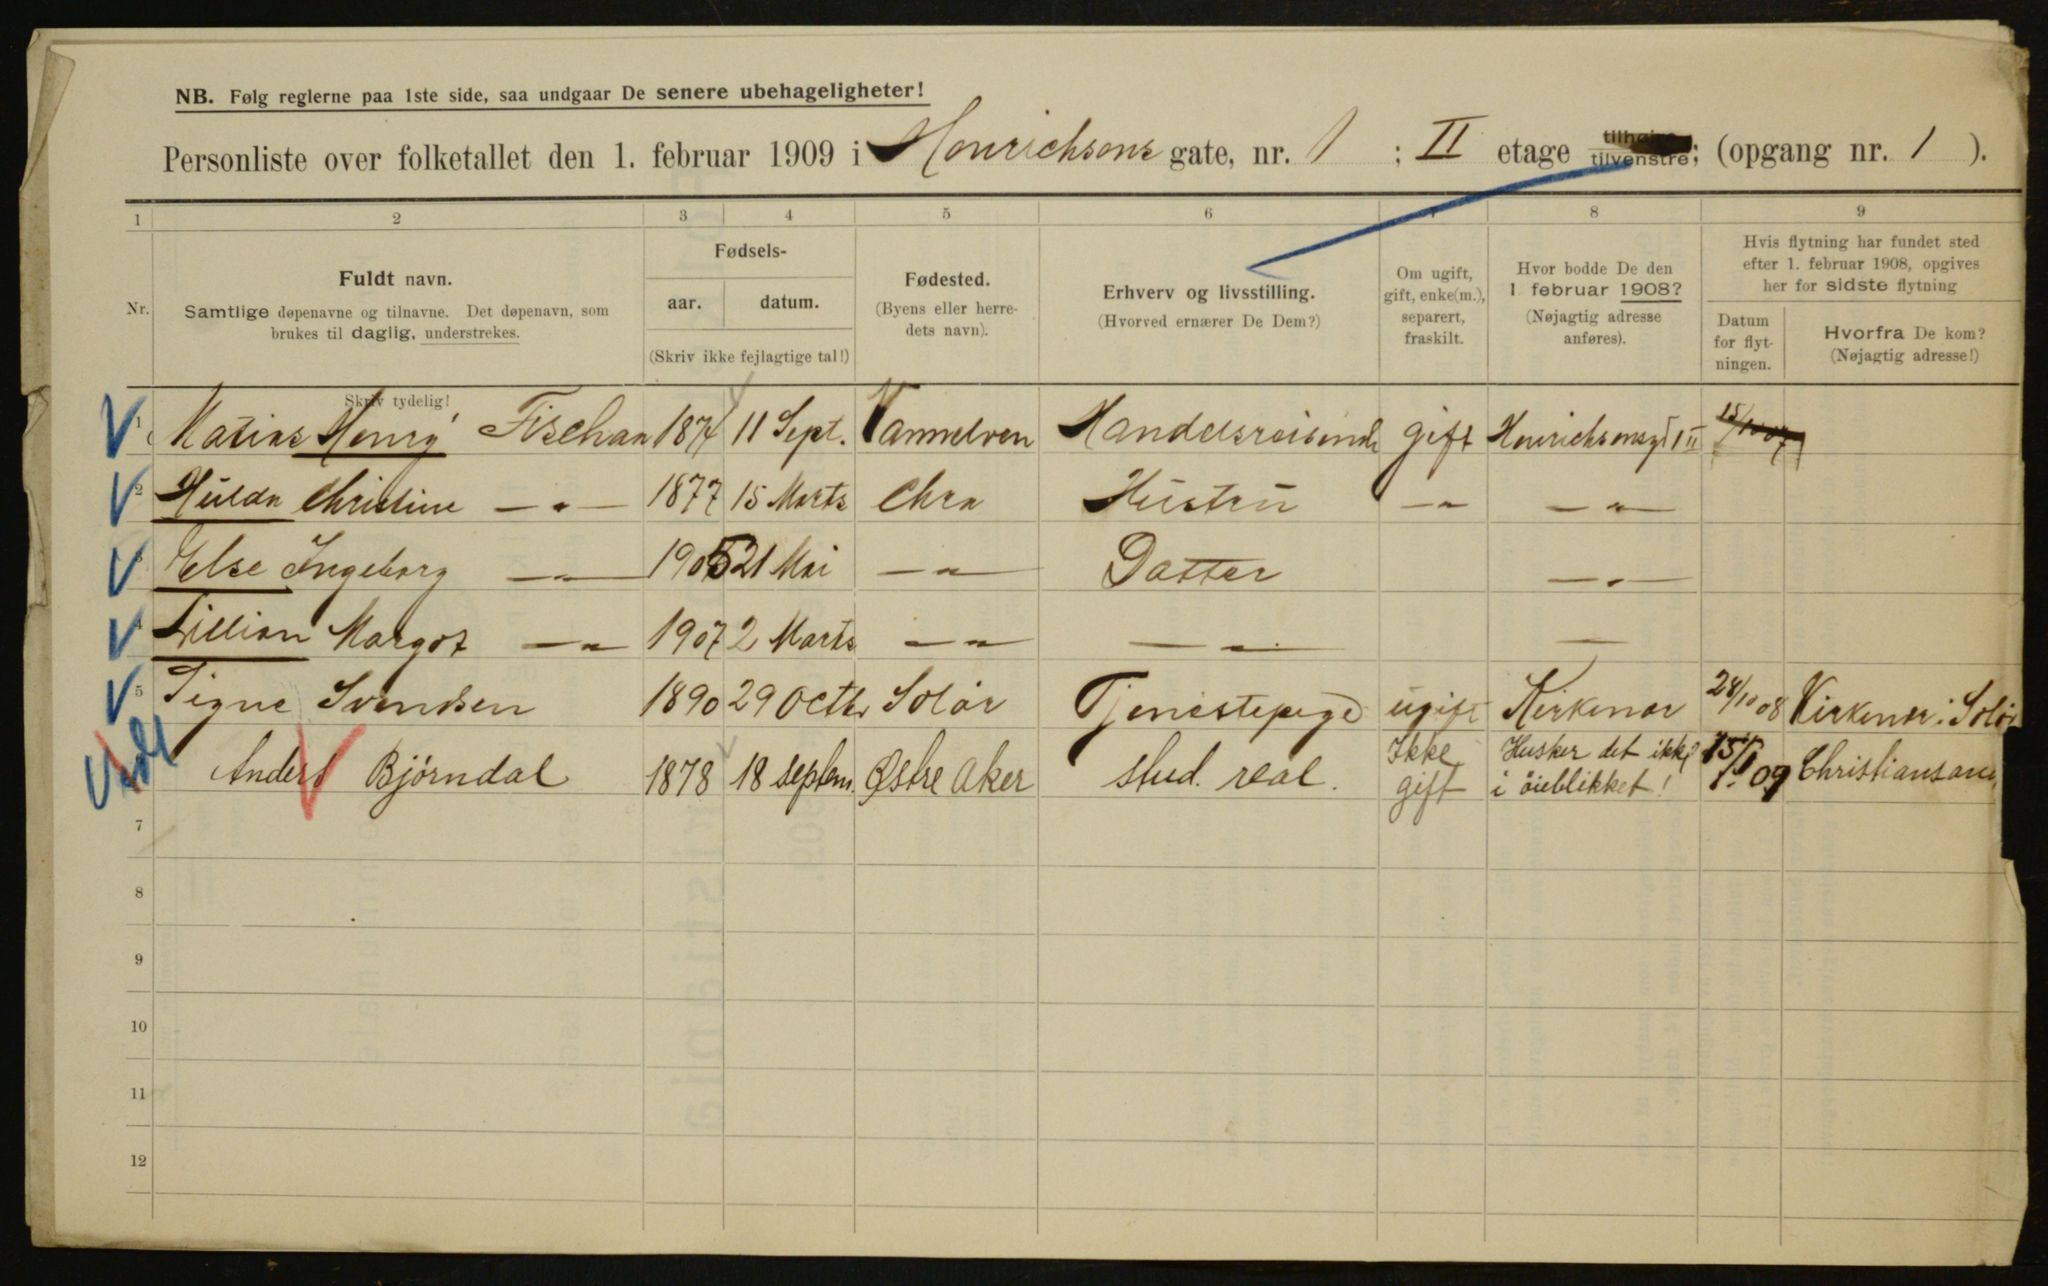 NB. Følg reglerne paa 1ste side, saa undgaar De senere ubehageligheter!
Personliste over folketallet den 1. februar 1909 i Henrichsens gate, nr. 1; II etage tilvenstre; (opgang nr. 1).
1 2 3 4 5 6 7 8 9
Nr.
Fuldt navn.
Samtlige døpenavne og tilnavne. Det døpenavn, som
brukes til daglig, understrekes.
Skriv tydelig!
Fødsels-
aar. datum.
(Skriv ikke feilagtige tal!)
Fødested.
(Byens eller herre-
dets navn).
Erhverv og livsstilling.
(Hvorved ernærer De Dem?)
Om ugift,
gift, enke(m.),
separert,
fraskilt.
Hvor bodde De den
1 februar 1908?
(Nøjagtig adresse
anføres).
Hvis flytning har fundet sted
efter 1. februar 1908, opgives
her for sidste flytning
Datum
for flyt-
ningen.
Hvorfra De kom?
(Nøjagtig adresse!)
1 Matias Henry 11 Sept. Handelsreisende gift II
2 Hulda Christine — " — 1877 15 Marts Chra Hustru — " — — " —
3 Else Ingeborg — " — 1905 21 Mai — " — Datter — " —
4 Lillian Margot — " — 1907 2 Marts — " — — " — —
5 Signe Svendsen 1890 29 Octbr Solør Tjenestepige ugift Kirkenær 28/10 08 Kirkenær i Solør
Anders Bjørndal 1878 18 septem. Østre Aker stud. real. Ikke gift Husker det ikke i öieblikket! 15/1 09 Christiansand
7
8
9
10
11
12